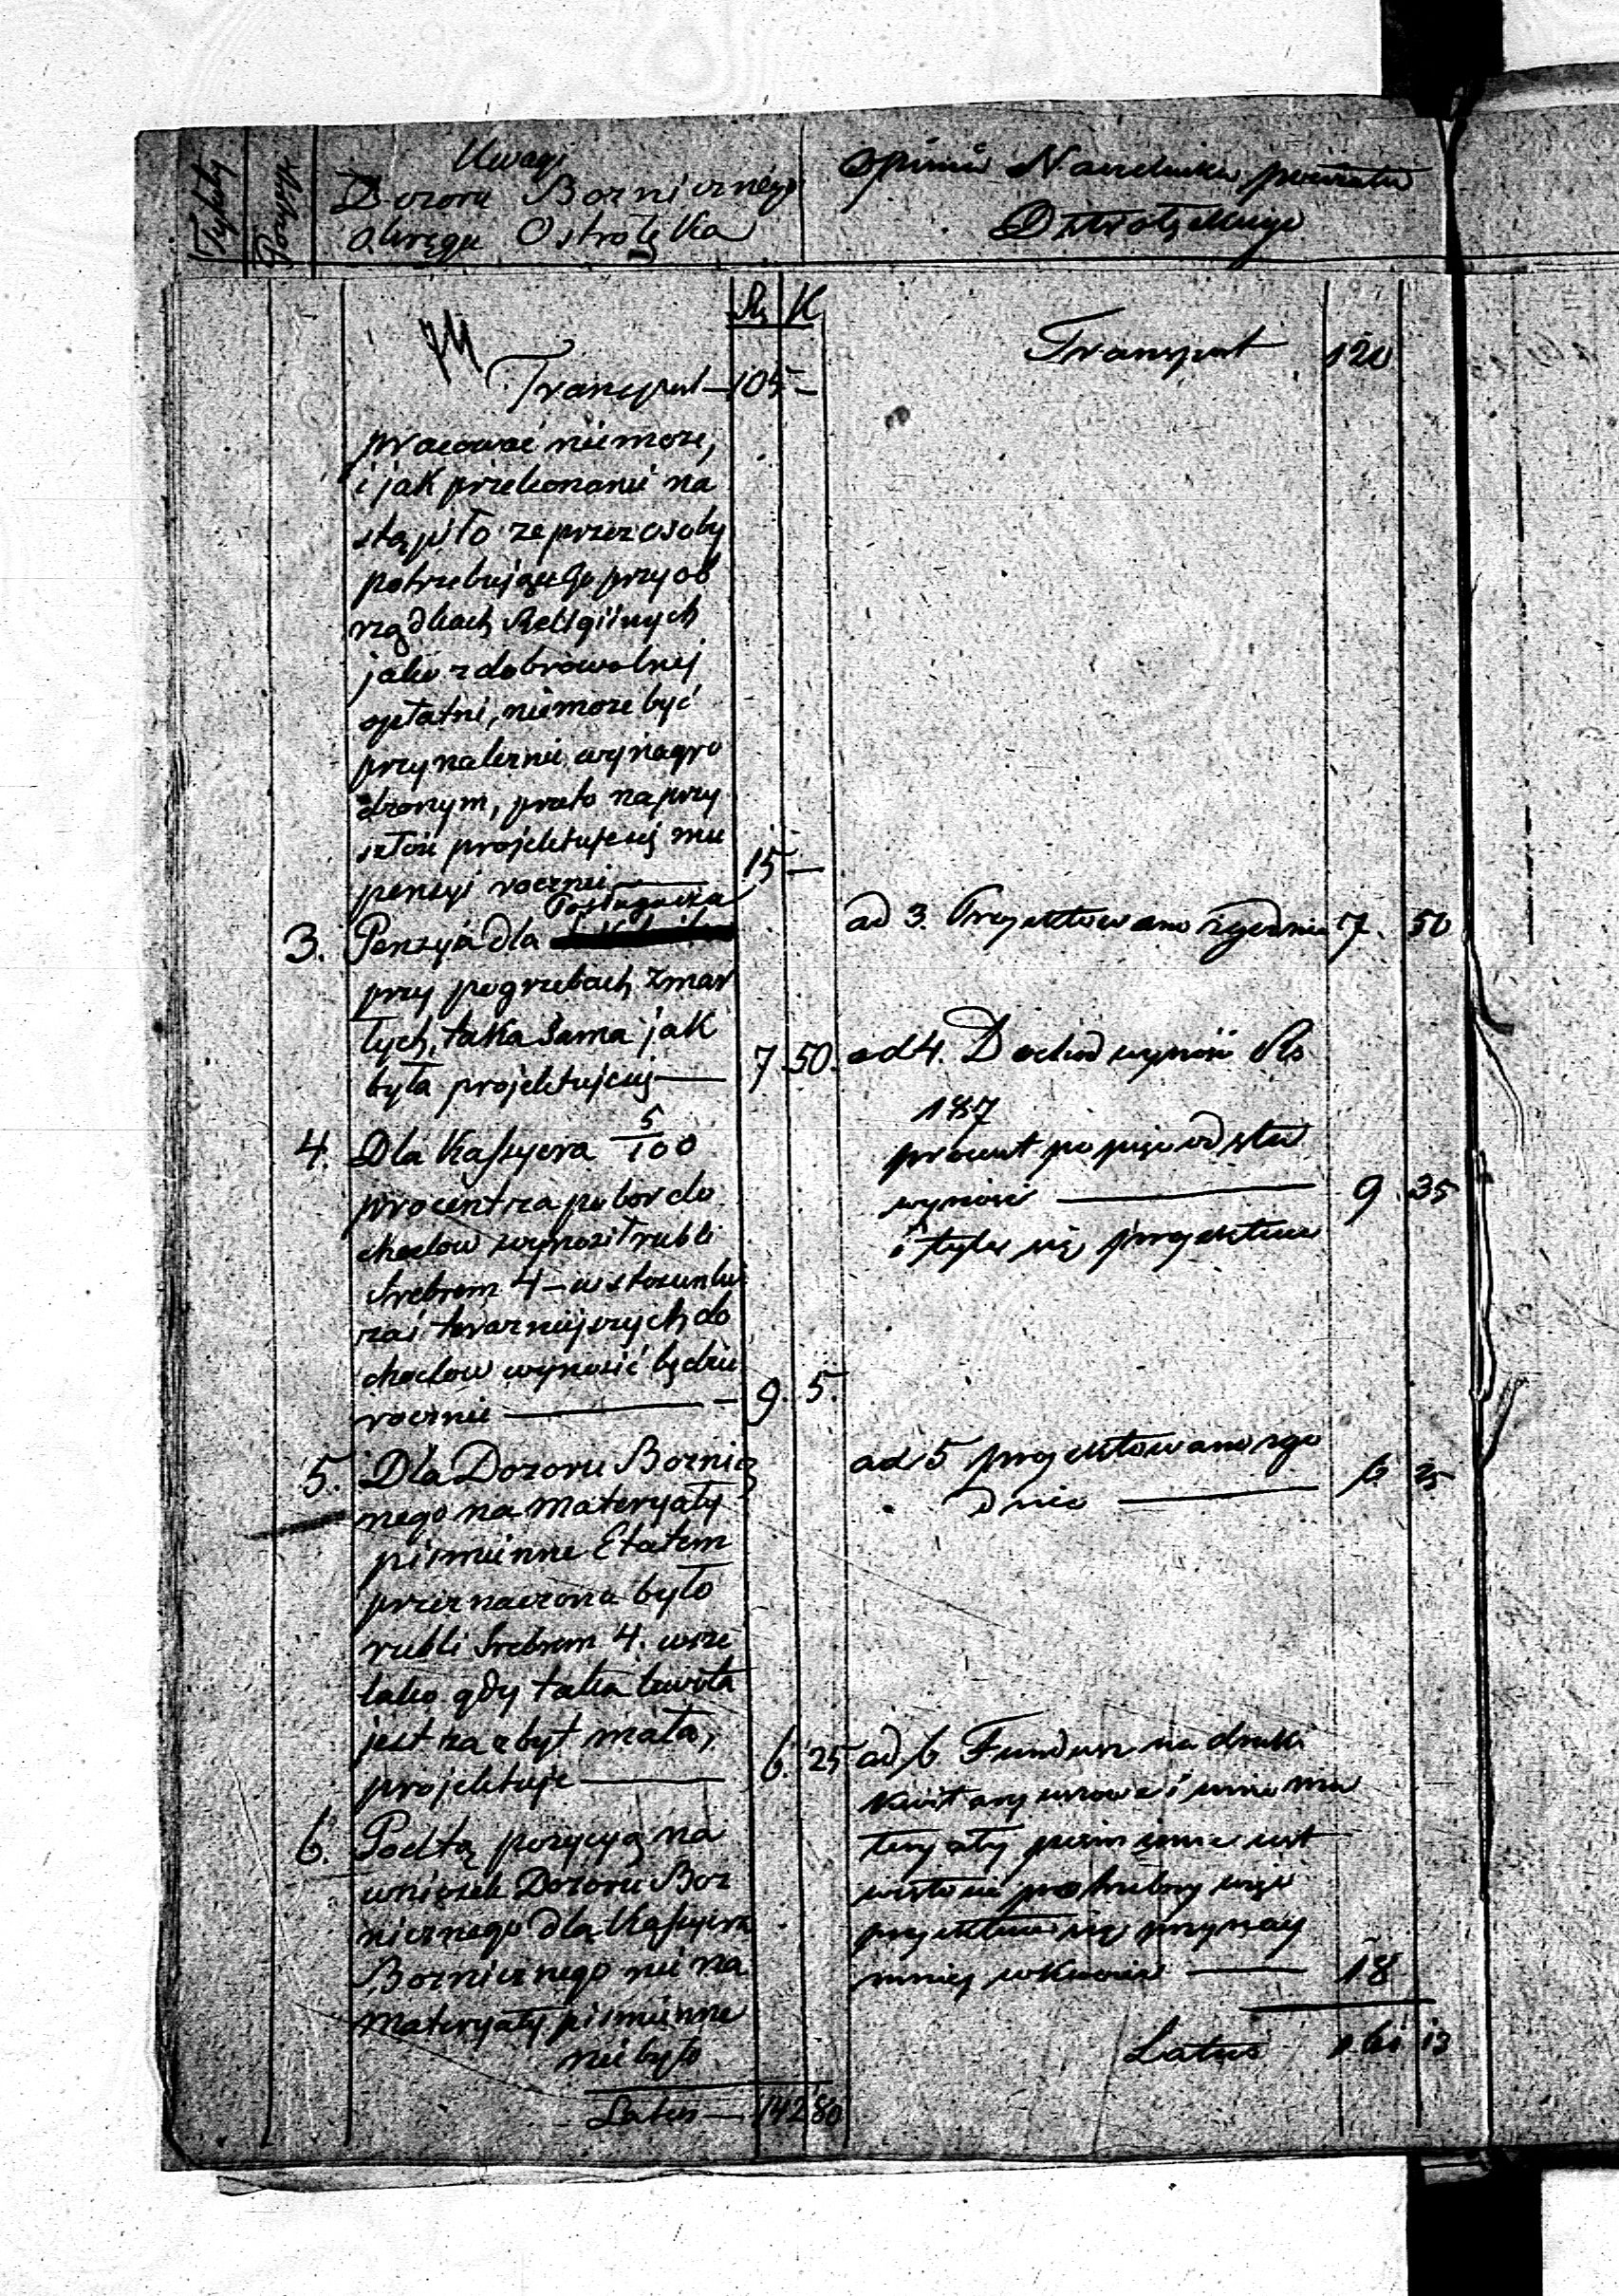 Tytuły
Pozycje
Uwagi
Dozoru Boznicznego
okręgu Ostrołęka
Opinia Naczelnika powiatu
Ostrołęckiego
Rs K
74
Transport — 105 —
pracować niemoże,
i jak przekonanie na
stąpiło ze przez osoby
potrzebujące Go przy ob
rządkach Religiinych
jako z dobrowolnej
opłatni, niemoze być
przynależnie wynagro
dzonym, przeto na przy
szłość projektuje się mu
pensyi rocznie — 15 —
3. Pensyia dla Posługacza
przy pogrzebach zmar
łych, taka sama jak
była projektuje się — 7 50.
4. Dla Kassyera 5/100
procent za pobor do
chodow wynosił rubli
Srebrem 4 — w stosunku
zaś teraznieyszych do
chodow wynosić będzie
rocznie — 9. 5.
5. Dla Dozoru Boznicz
nego na Materyały
pismienne Etatem
przeznaczona było
rubli Srebrem 4. wsze
lako gdy taka kwota
jest za zbyt mała,
projektuje — 6. 25
6. Pod tą pozycyą na
wniosek Dozoru Boz
nicznego dla Kassyiera
Bozniicznego nie na
Materyały pismienne
nie było
Latus — 142 80
Transport 120
ad 3. Projektowano zgodnie 7. 50
ad 4. Dochod wynosi Rs
187
procent po pięć od sta
wynosi — 9 35
i tyle się projektuie
ad 5 projektowano zgo
dnie — 6 25
ad 6 Fundusz na druki
kwitaryuszowe i inne ma
teryały pismienne jest
istotnie potrzebny więc
projektuie się przynay
mniey w kwocie — 18
Latus 161 13